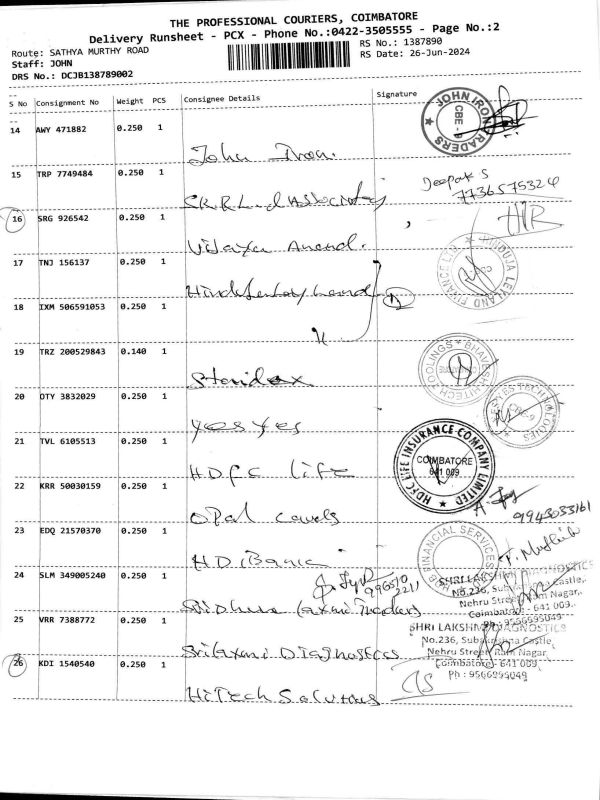 THE PROFESSIONAL COURIERS, COIMBATORE
Delivery Runsheet - PCX - Phone No.:0422-3505555 - Page No.:2
Route: SATHYA MURTHY ROAD
RS No.: 1387890
Staff: JOHN
RS Date: 26-Jun-2024
DRS No.: DCJB138789002
S No Consignment No Weight PCS Consignee Details Signature
JOHN IRON TRADERS CBE-9
14 AWY 471882 0.250 1
John Iron.
15 TRP 7749484 0.250 1
Deepak S
7736575324
16 SRG 926542 0.250 1
Vijaya Anand.
17 TNJ 156137 0.250 1
HINDUJA LEYLAND FINANCE
18 IXM 506591053 0.250 1
"
19 TRZ 200529843 0.140 1
TOOLINGS * BHAVESH
20 OTY 3832029 0.250 1
yes yes
21 TVL 6105513 0.250 1
HDFC LIFE INSURANCE COMPANY LIMITED
COIMBATORE
641 009
HDFC life
22 KRR 50030159 0.250 1
9943033161
Opal
23 EDQ 21570370 0.250 1
FINANCIAL SERVICES
24 SLM 349005240 0.250 1
SHRI LAKSHMI DIAGNOSTICS
No.236, Castle,
Nehru Street, Ram Nagar,
Coimbatore - 641 009.
Ph : 9566995049
25 VRR 7388772 0.250 1
SHRI LAKSHMI DIAGNOSTICS
No.236, Castle
Nehru Street, Ram Nagar,
Coimbatore - 641 009
Ph : 9566995049
Srilaxmi Diagnostics
26 KDI 1540540 0.250 1
HiTech Solutions